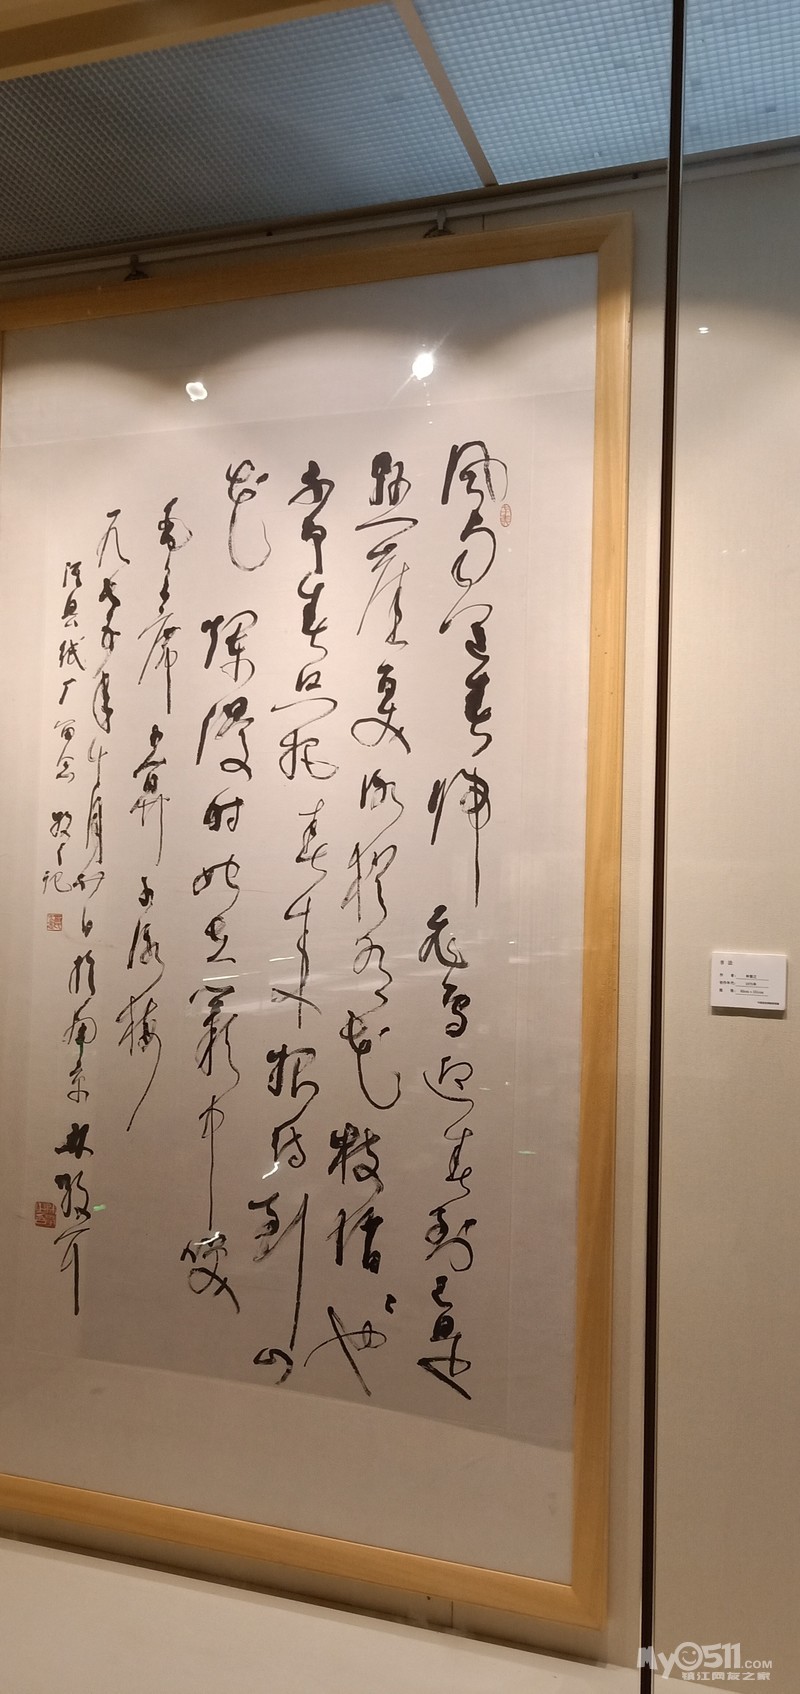 风雨送春归飞雪迎春到已是
悬崖百丈冰犹有花枝俏俏也
不争春只把春来报待到山
花烂漫时她在丛中笑
毛主席卜算子咏梅
一九七五年十月 日于南京 林散耳
泾县纸厂留念 散之记
My0511.COM
镇江网友之家